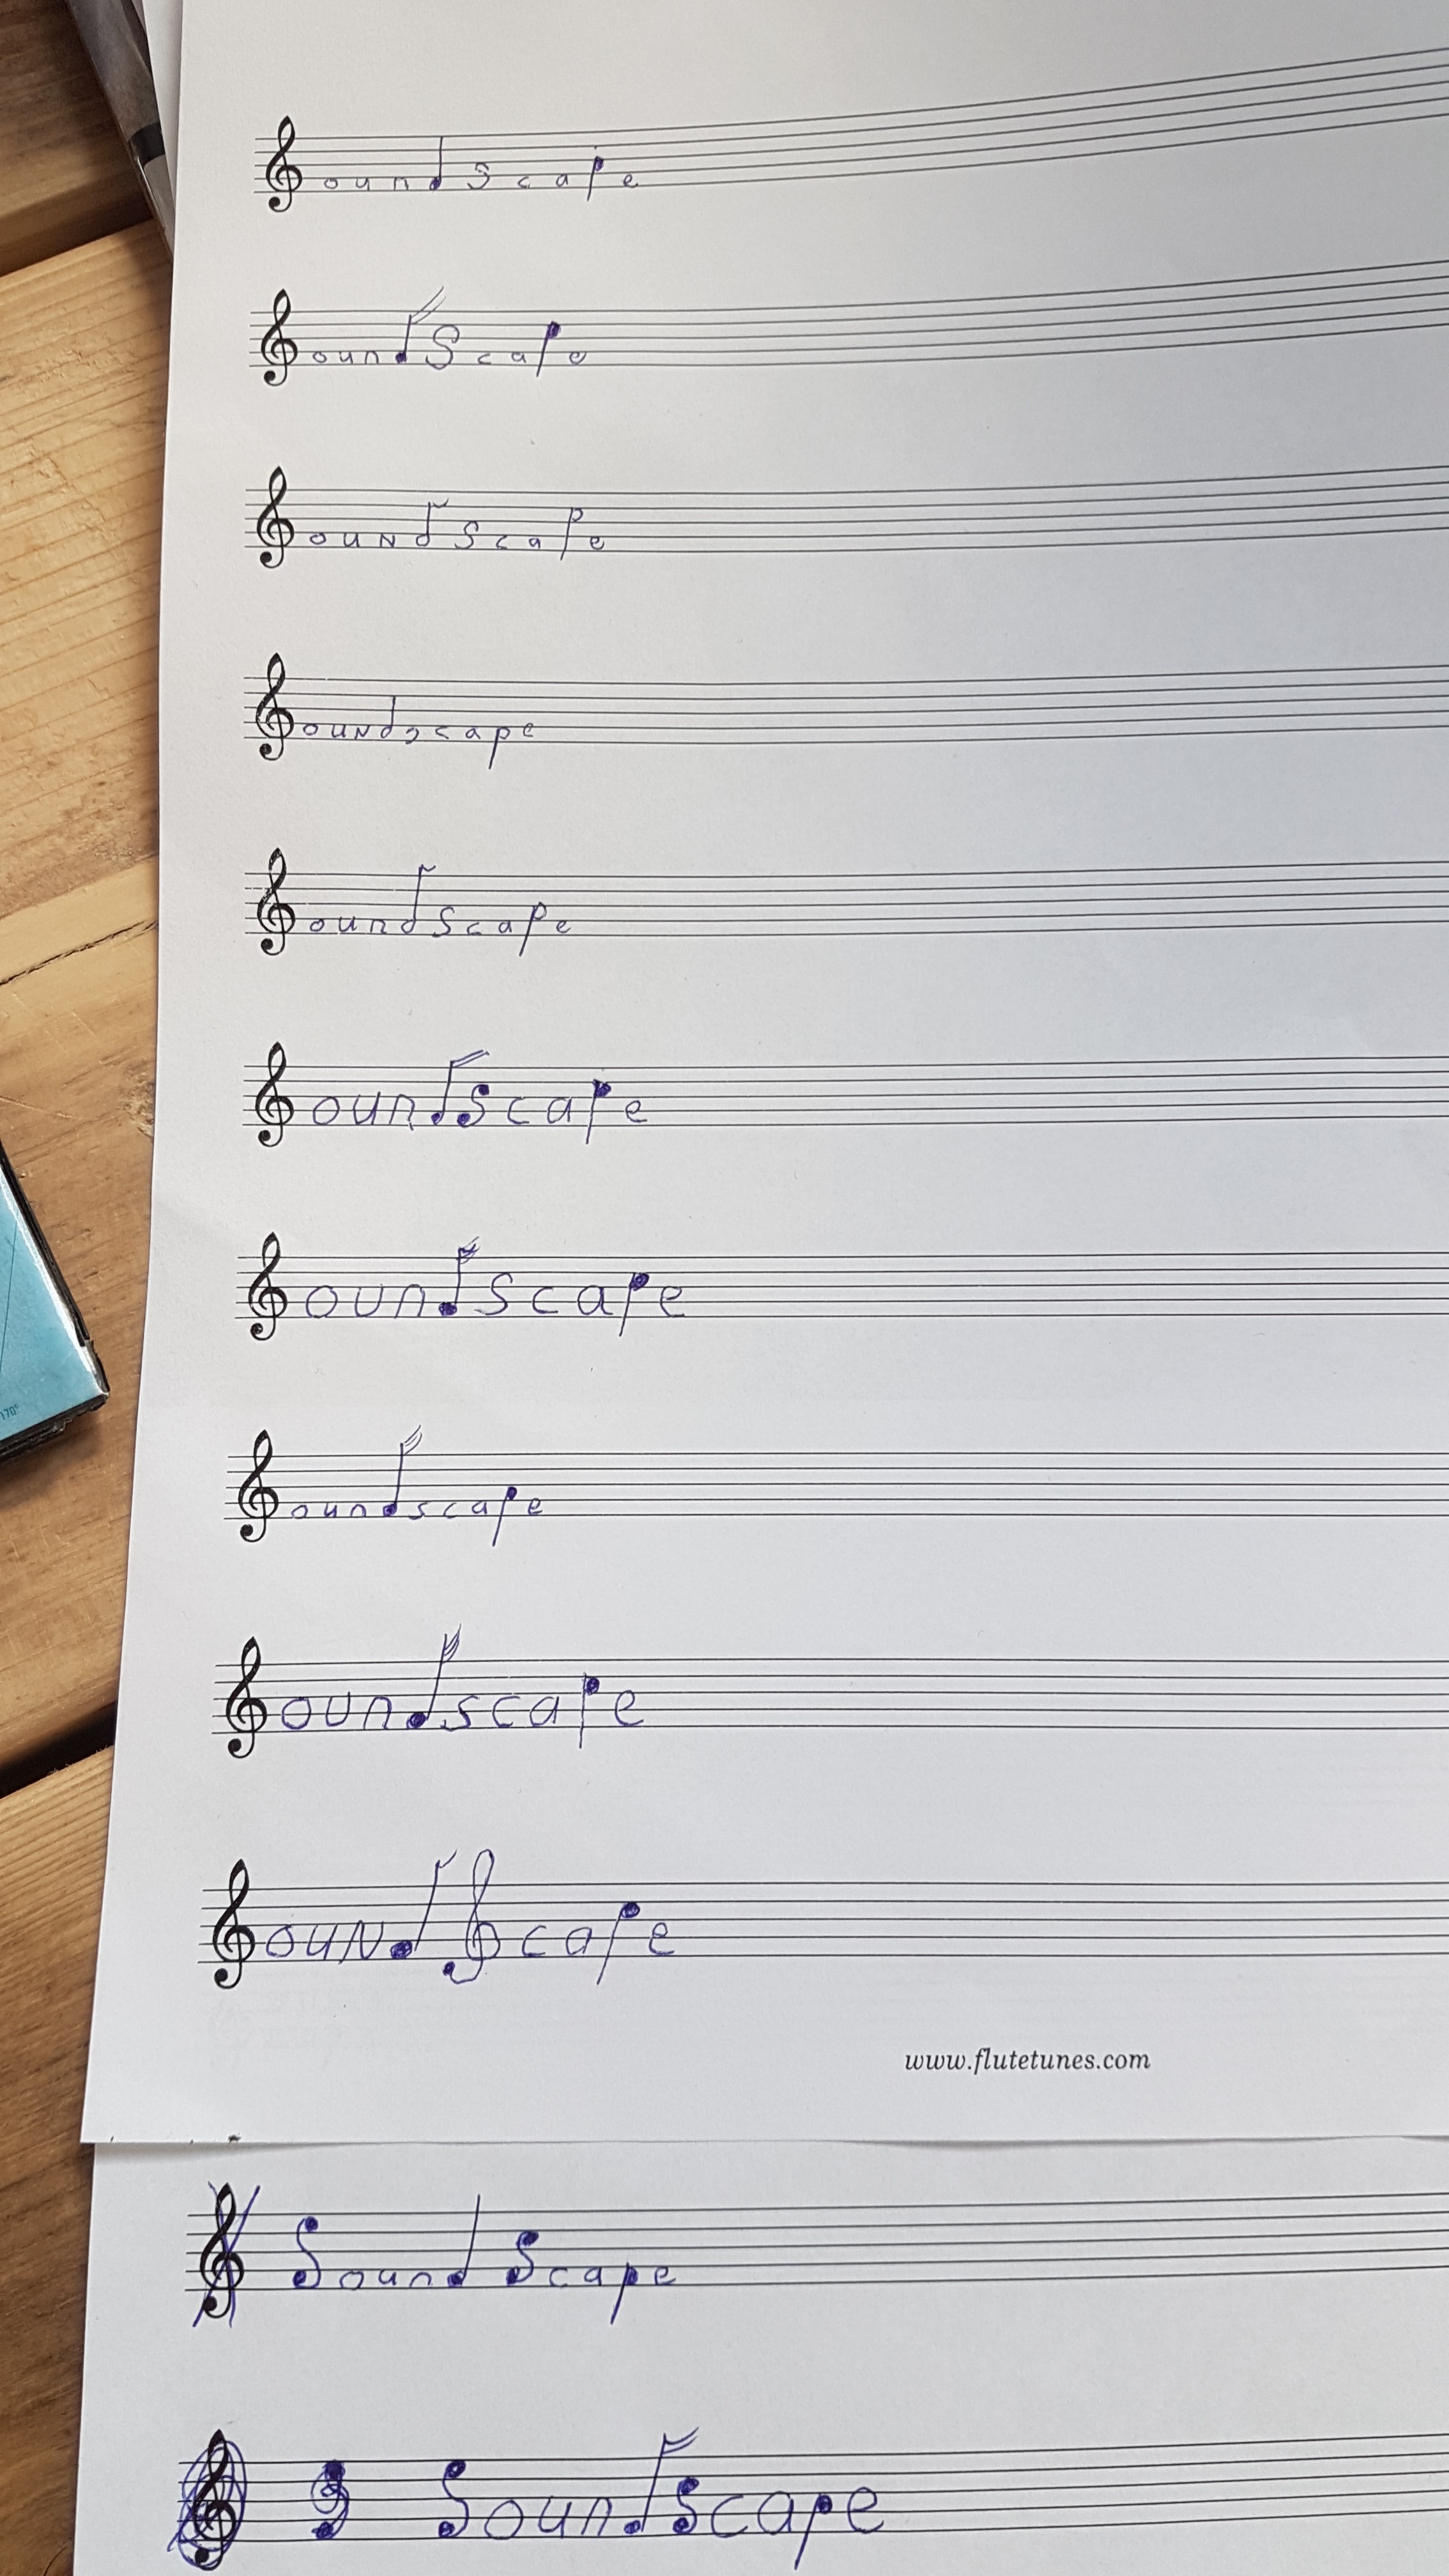 ound Scape
ound Scape
ouNd Scape
ouNdscape
oundScape
oundScape
oundScape
oundscape
oundscape
ouNd cape
www.flutetunes.com
Sound Scape
SoundScape
170°